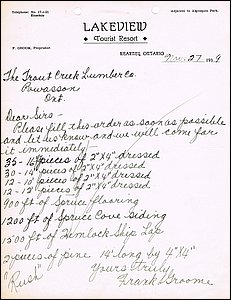 Telephone
No. 17-r-21
Rosseau
Adjacent to Algonquin Park
LAKEVIEW
Tourist Resort
F. GROOM, Proprietor
KEARNEY, ONTARIO
Nov. 27 19
The Trout Creek Lumber Co.
Powasson
Ont.
Dear Sirs -
Please fill this order as soon as possible
and let us know and we will come for
it immediately.
35 - 16' pieces of 2"x4" dressed
30 - 14' pieces of 2"x4" dressed
12 - 12' pieces of 2"x4" dressed
12 - 10' pieces of 2"x4" dressed
900 ft of Spruce flooring
1200 ft of Spruce Cove Siding
1200 ft of Hemlock Ship Lap
2 pieces of pine 14' long by 4"x4"
"Rush"
Yours truly
Frank Groome